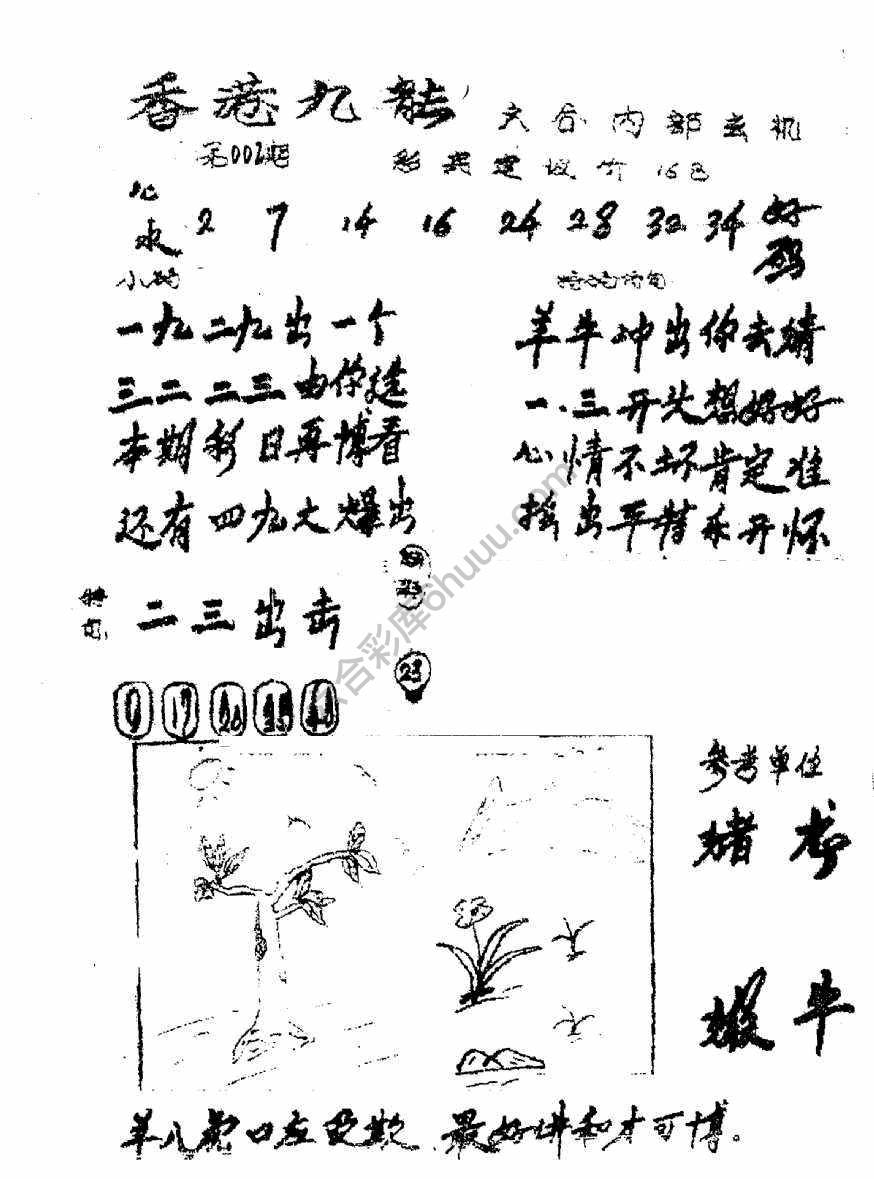 香港九龙
六合内部玄机
第002期
彩民建议价168
心水 2 7 14 16 24 28 32 34 好码
小诗
一九二九出一个
三二二三由你选
本期彩日再博看
还有四九大爆出
羊牛冲出你去猜
一、三开头想好好
心情不坏肯定准
摇出平特乐开怀
特句:
二三出击
23
9 17
合彩库6huuu.com
参考单位
猪 龙
猴 牛
最好讲和才可博。